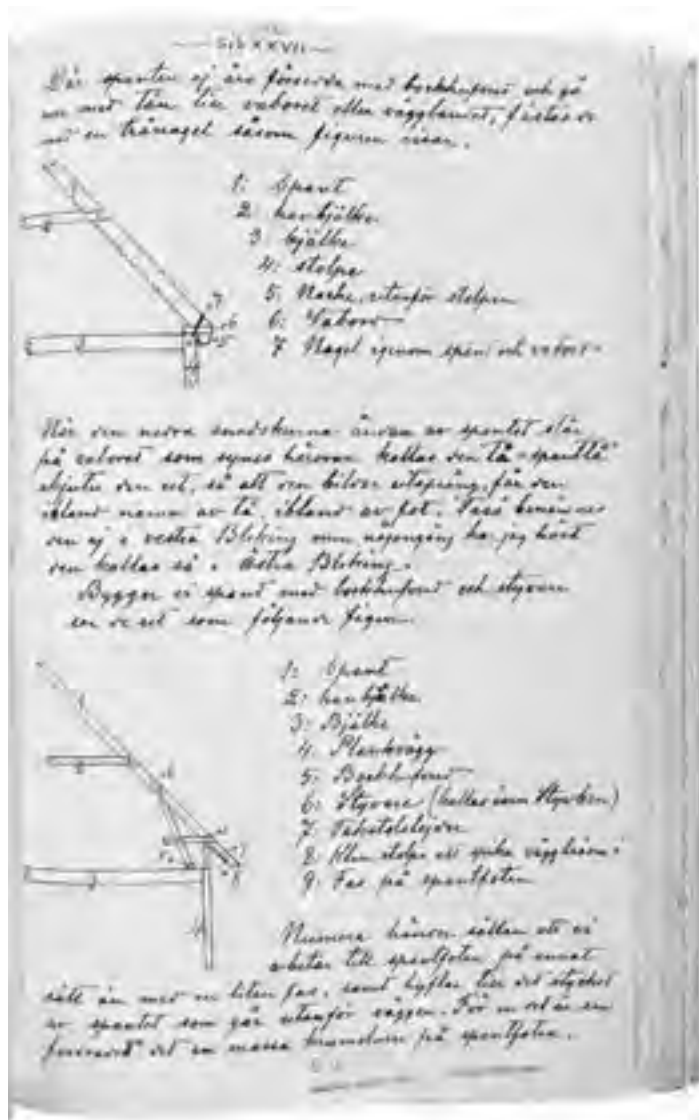 Sid XXVII
Där spanten ej äro försedda med bockhufvud och gå
ner med tån till vabovet eller väggbandet, fästas de
med en tränagel såsom figuren visar.
1: Spant
2: hanbjälke
3: bjälke
4: stolpe
5: utanför stolpen
6: Vabov
7 Nagel igenom spant och vabov
När den nedra snedskurna ändan av spantet står
på vabovet som synes härovan kallas den tå = spanttå
skjuter den ut, så att den bildar utsprång, får den
ibland namn av tå, ibland av fot. Tass benämnes
den ej i västra Bleking men någongång har jag hört
den kallas så i Östra Bleking.
Bygger vi spant med bockhufvud och styvare
ser de ut som följande figur.
1: Spant
2: hanbjälke
3: Bjälke
4: Plankvägg
5: Bockhufvud
6: Styvare (kallas även Styvben)
7
8 stolpe att spika i
9: Fas på spantfoten
Numera händer sällan att vi
arbetar till spantfoten på annat
sätt än med en liten fas, samt hyflar till det stycket
av spantet som går utanför väggen. För en del år sen
det en massa på spantfoten.